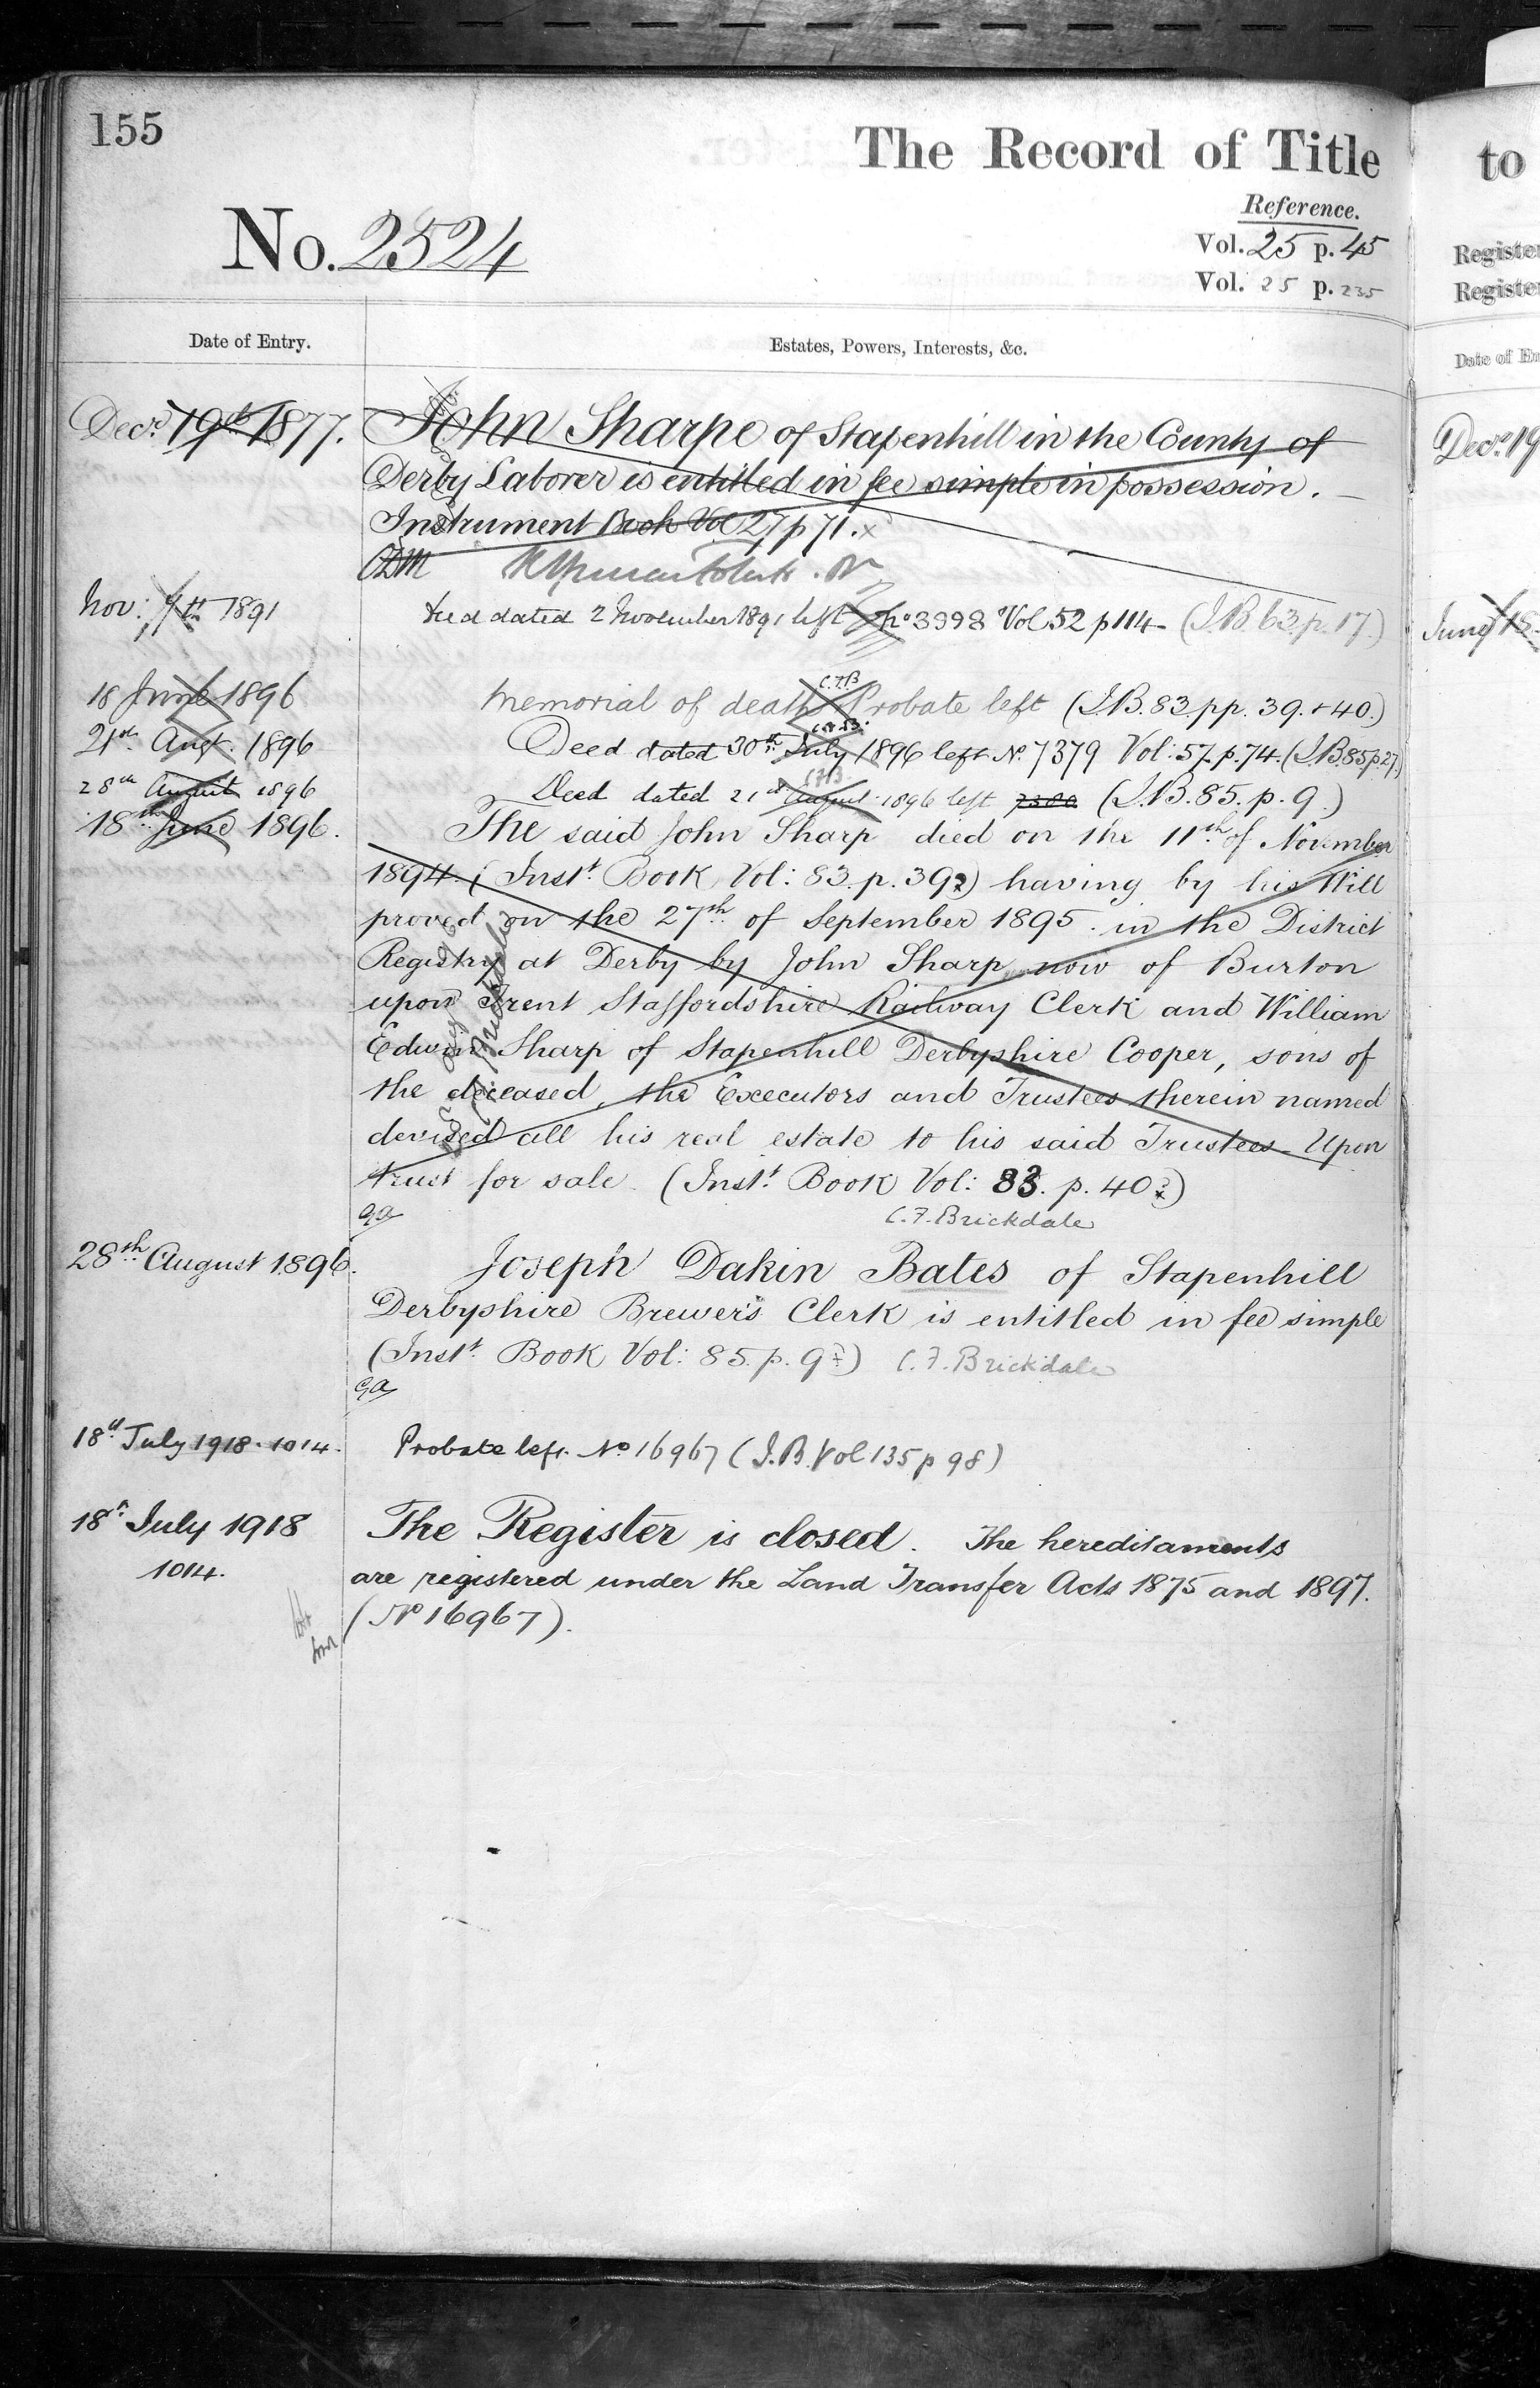 155
The Record of Title
to
Reference.
No. 2524
Vol. 25 p. 45
Register
Vol. 25 p. 235
Register
Date of Entry.
Estates, Powers, Interests, &c.
Date of En
Decr. 19th 1877.
John Sharpe of Stapenhill in the County of
Derby Laborer is entitled in fee simple in possession.
Instrument Book Vol 27 p 71.
Decr. 19
Nov: 9th 1891
Deed dated 2 November 1891 left No 3998 Vol 52 p 114 (I.B. 63. p. 17.)
June 18
C.F.B
18 June 1896
Memorial of death & Probate left (I.B. 83. pp. 39. + 40.)
C.F.B.
21st Augt. 1896
Deed dated 30th July 1896 left No. 7379 Vol: 57. p. 74. (I.B. 85 p 27.)
C.F.B
28th August 1896
Deed dated 21st August 1896 left 7380 (I.B. 85. p. 9.)
18th June 1896.
The said John Sharp died on the 11th of November
1894. (Inst. Book Vol: 83. p. 39) having by his Will
proved on the 27th of September 1895. in the District
Registry at Derby by John Sharp now of Burton
upon Trent Staffordshire Railway Clerk and William
Edwin Sharp of Stapenhill Derbyshire Cooper, sons of
the deceased, the Executors and Trustees therein named
devised all his real estate to his said Trustees - Upon
trust for sale. (Inst. Book Vol: 83. p. 40)
C.F. Brickdale
28th August 1896.
Joseph Dakin Bates of Stapenhill
Derbyshire Brewer's Clerk is entitled in fee simple
(Inst. Book Vol: 85. p. 9) C.F. Brickdale
18th July 1918. 1014.
Probate left. No 16967 (I.B. Vol 135 p 98)
18th July 1918
1014.
The Register is closed. The hereditaments
are registered under the Land Transfer Acts 1875 and 1897.
(No 16967).